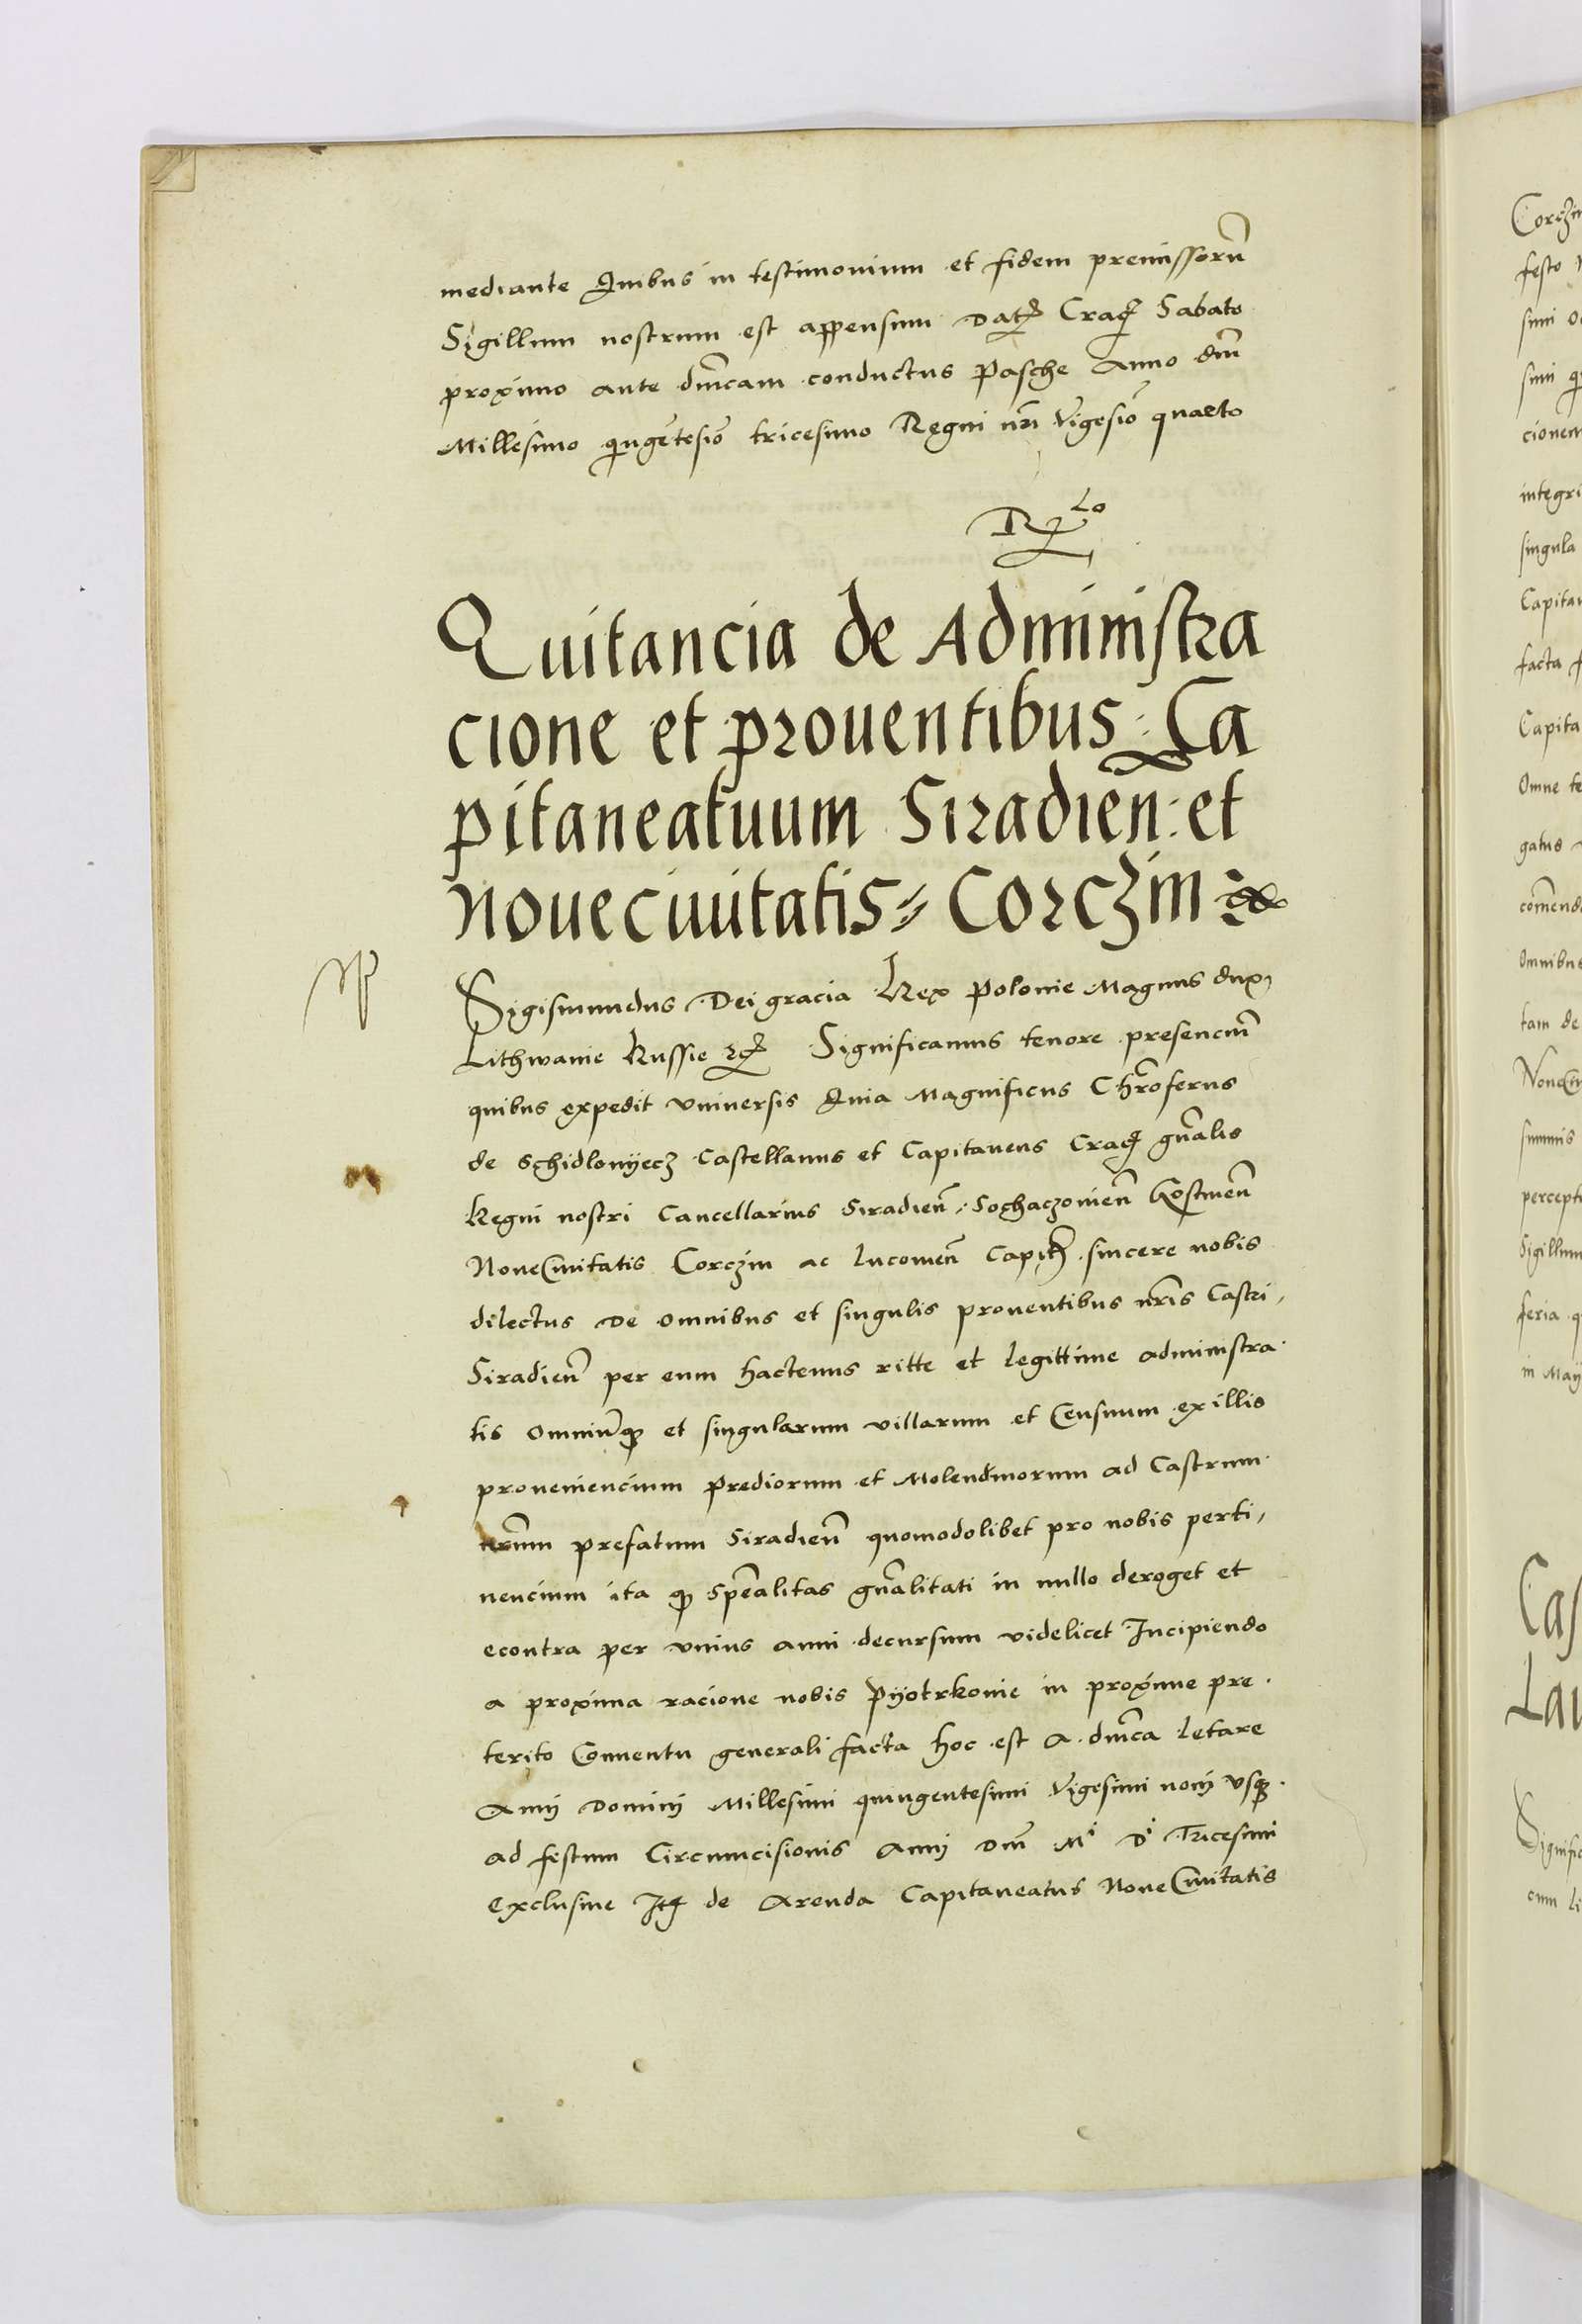 mediante Quibus in testimonium et fidem premissorũ
Sigillum nostrum est appensum Datʒ Cracʒ Sabato
proximo ante dñicam conductus Pasche Anno dñi
Millesimo quigẽtesiõ tricesimo Regni nr̃i Vigesiõ quarto
Rlo
Quitancia de Administra
cione et prouentibus: Ca
pitaneatuum Siradieñ: et
Noue ciuitatis Corczin
Sigismundus Dei gracia Rex Polonie Magnus dux
Lithwanie Russie ꝛcʒ Significamus tenore presenciũ
quibus expedit vniuersis Quia Magnificus Chr̃oferus
de Schidlowyecz Castellanus et Capitaneus Cracʒ gñalis
Regni nostri Cancellarius Siradieñ: Sochaczouieñ Gostineñ
Noue Ciuitatis Corczin ac Lucouieñ Capitʒ sincere nobis
dilectus De omnibus et singulis prouentibus nr̃is Castri
Siradieñ per eum hactenus ritte et legittime administra
tis Omniũqʒ et singularum villarum et Censuum ex illis
proueniencium prediorum et Molendinorum ad Castrum
nr̃um prefatum Siradieñ quomodolibet pro nobis perti
nencium ita qʒ spẽalitas gñalitati in nullo deroget et
econtra per vnius anni decursum videlicet Incipiendo
a proxima racione nobis Pyotrkouie in proxime pre
terito Conuentu generali facta hoc est A dñica letare
Annj Dominj Millesimi quingentesimi Vigesimi nonj vsqʒ
ad festum Circumcisionis Annj Dñi Mi Di Tricesimi
Exclusiue Itʒ de Arenda Capitaneatus Noue Ciuitatis